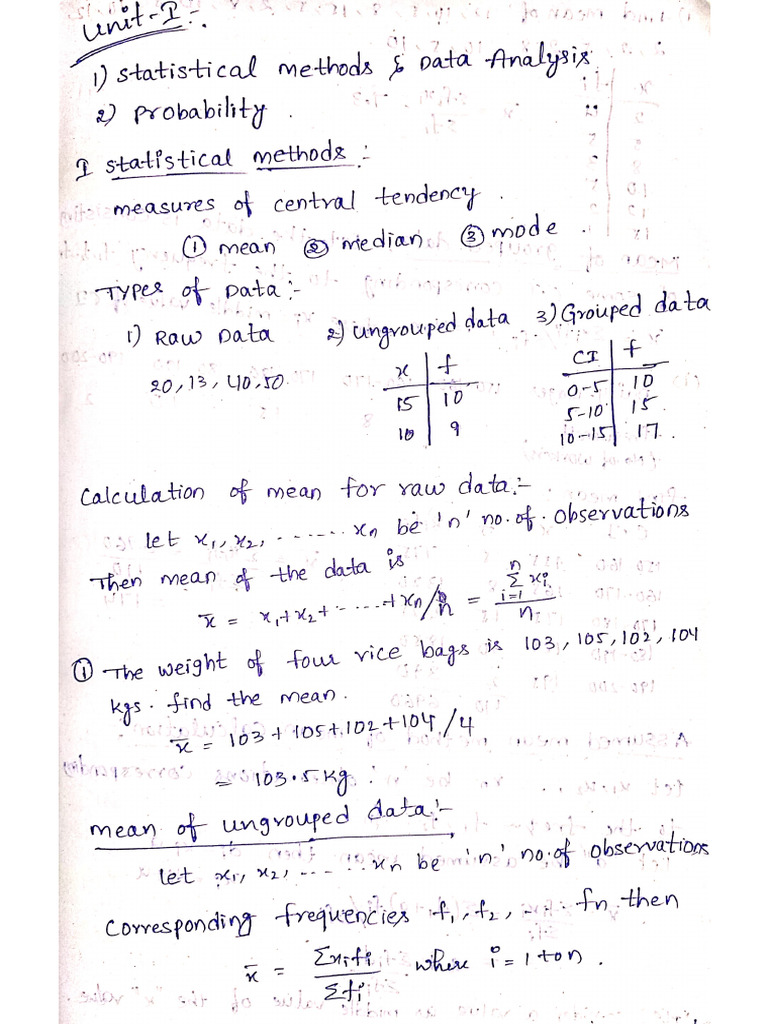 Unit-I :-
1) Statistical methods & Data Analysis
2) Probability .
I Statistical methods :-
measures of central tendency .
① mean ② median ③ mode .
Types of Data :-
1) Raw Data 2) ungrouped data 3) Grouped data
20, 13, 40, 50
x | f
15 | 10
10 | 9
CI | f
0-5 | 10
5-10 | 15
10-15 | 17 .
Calculation of mean for raw data :-
let x₁, x₂, ------- xn be 'n' no. of observations
Then mean of the data is
x̄ = x₁+x₂+ - - . . . + xn/n = Σ xi / n (i=1, n)
① The weight of four rice bags is 103, 105, 102, 104
kgs. find the mean.
x̄ = 103 + 105 + 102 + 104 / 4
= 103.5 kg
mean of ungrouped data :-
let x₁, x₂, ------- xn be 'n' no. of observations
corresponding frequencies f₁, f₂, - . . fn then
x̄ = Σxifi / Σfi where i = 1 to n .